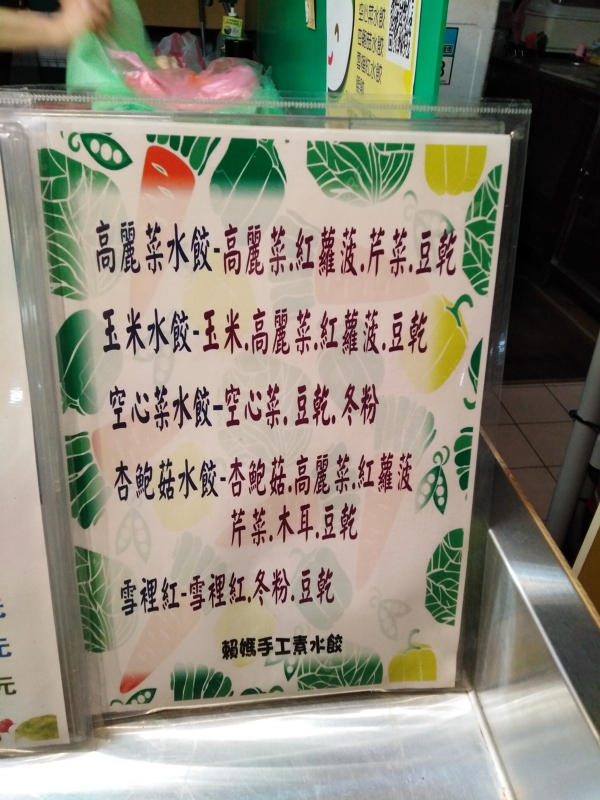 空心菜水餃
杏鮑菇水餃
雪裡紅水餃
高麗菜水餃-高麗菜.紅蘿菠.芹菜.豆乾
玉米水餃-玉米.高麗菜.紅蘿菠.豆乾
空心菜水餃-空心菜.豆乾.冬粉
杏鮑菇水餃-杏鮑菇.高麗菜.紅蘿菠
芹菜.木耳.豆乾
雪裡紅-雪裡紅.冬粉.豆乾
賴媽手工素水餃
元
元